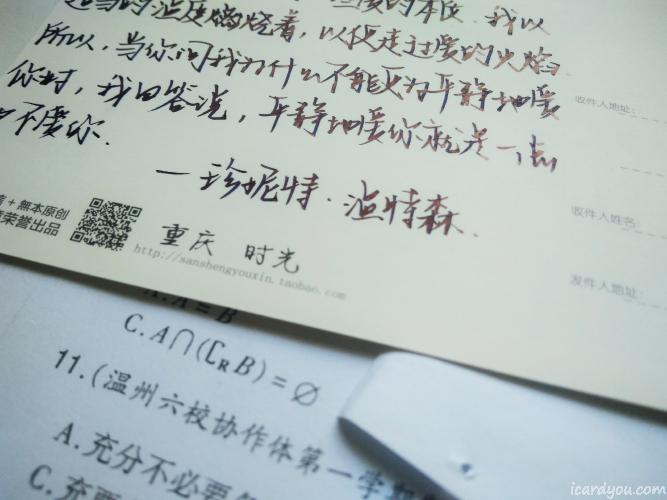 适当的温度燃烧着，以便走过
所以，当你问我为什么不能更为平静地爱
你时，我回答说，平静地爱你就是一点
不爱你.
—珍妮特·温特森.
収件人地址:
收件人姓名:
发件人地址:
+ 無本原创
荣誉出品
重庆 时光
http://sanshengyouxin.taobao.com
A. A = B
C. A∩(∁RB)=∅
11. (温州六校协作体第一学期
A. 充分不必要
C. 充要
icardyou.com